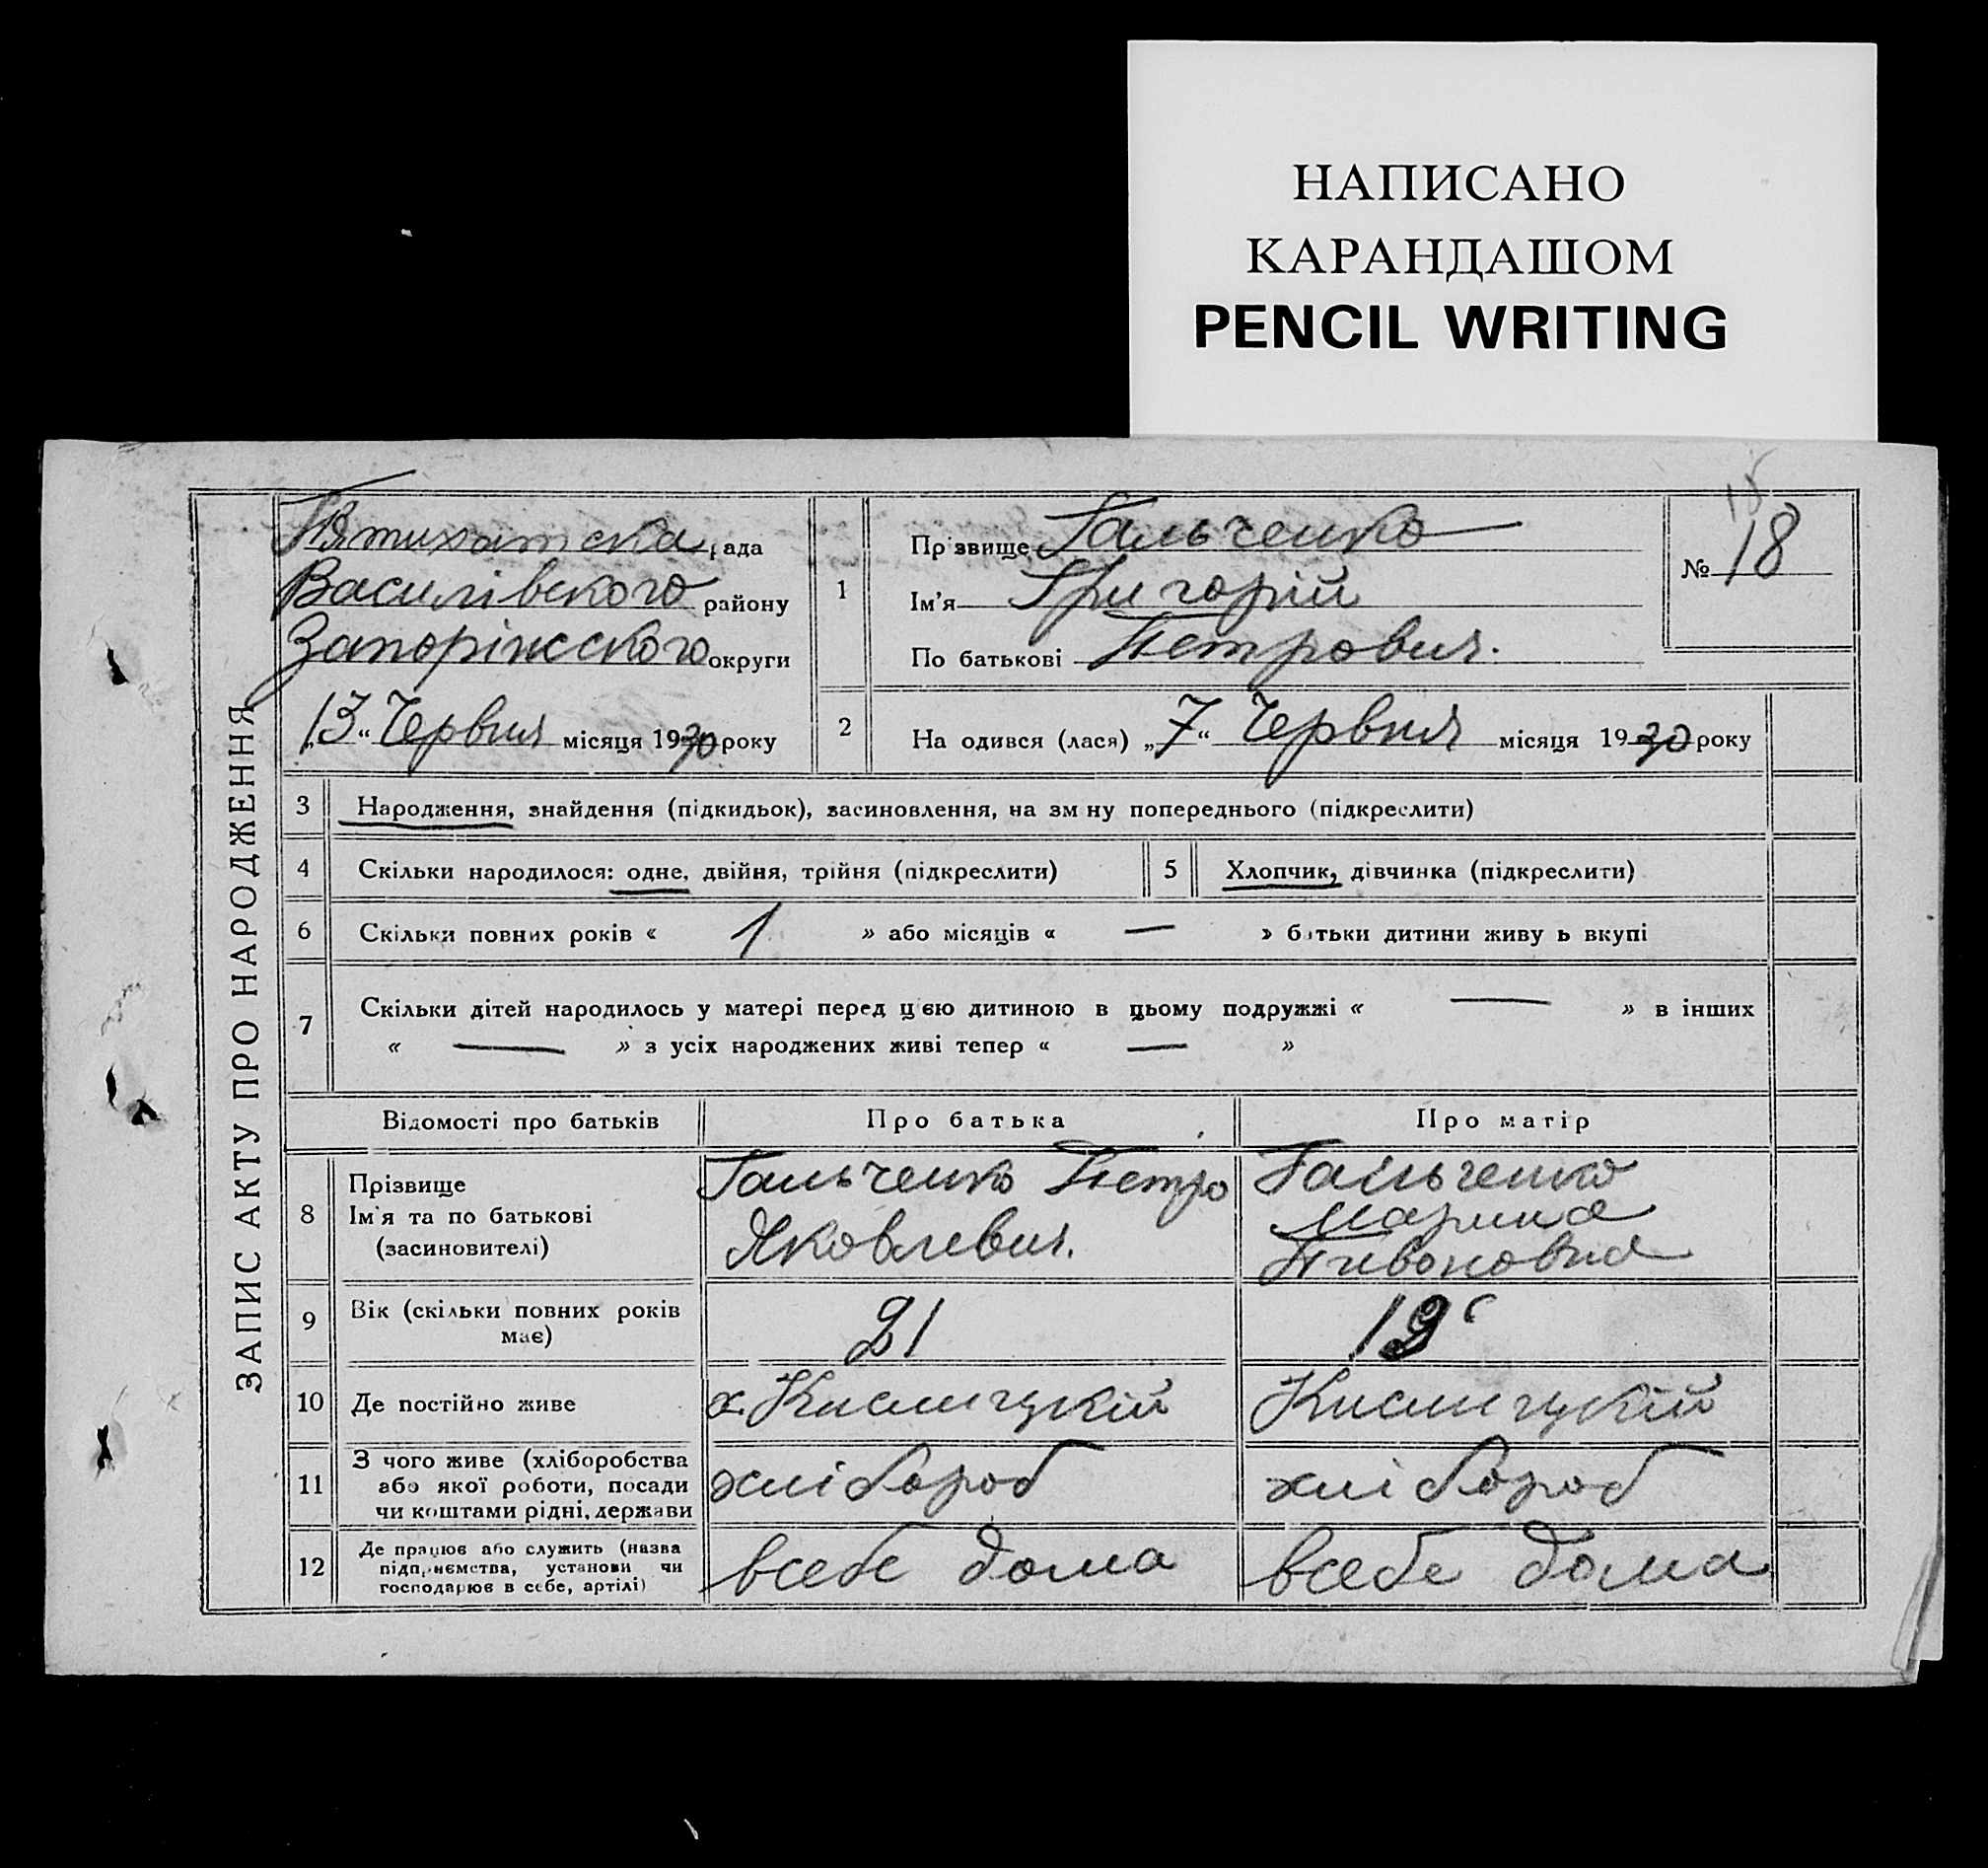 НАПИСАНО
КАРАНДАШОМ
PENCIL WRITING
ЗАПИС АКТУ ПРО НАРОДЖЕННЯ
Пятихатска рада
Василівского району
Запоріжского округи
„13“ Червня місяця 1930 року
1
Прізвище Гальченко
Ім'я Григорій
По батькові Петрович.
№ 18
2
На одився (лася) „7“ Червня місяця 1930 року
3 Народження, знайдення (підкидьок), засиновлення, на зм ну попереднього (підкреслити)
4 Скільки народилося: одне, двійня, трійня (підкреслити)
5 Хлопчик, дівчинка (підкреслити)
6 Скільки повних років « 1 » або місяців « — » батьки дитини живу ь вкупі
7 Скільки дітей народилось у матері перед цією дитиною в цьому подружжі « — » в інших
« — » з усіх народжених живі тепер « — »
Відомості про батьків Про батька Про матір
8 Прізвище
Ім'я та по батькові
(засиновителі)
Гальченко Петро
Яковлевич.
Гальченко
Марина
9 Вік (скільки повних років
має)
21
10 Де постійно живе
х. Кислицкій
Кислицкій
11 З чого живе (хліборобства
або якої роботи, посади
чи коштами рідні, держави
хлібороб
хлібороб
12 Де працює або служить (назва
підприємства, установи чи
господарює в себе, артілі)
всебе дома
всебе дома